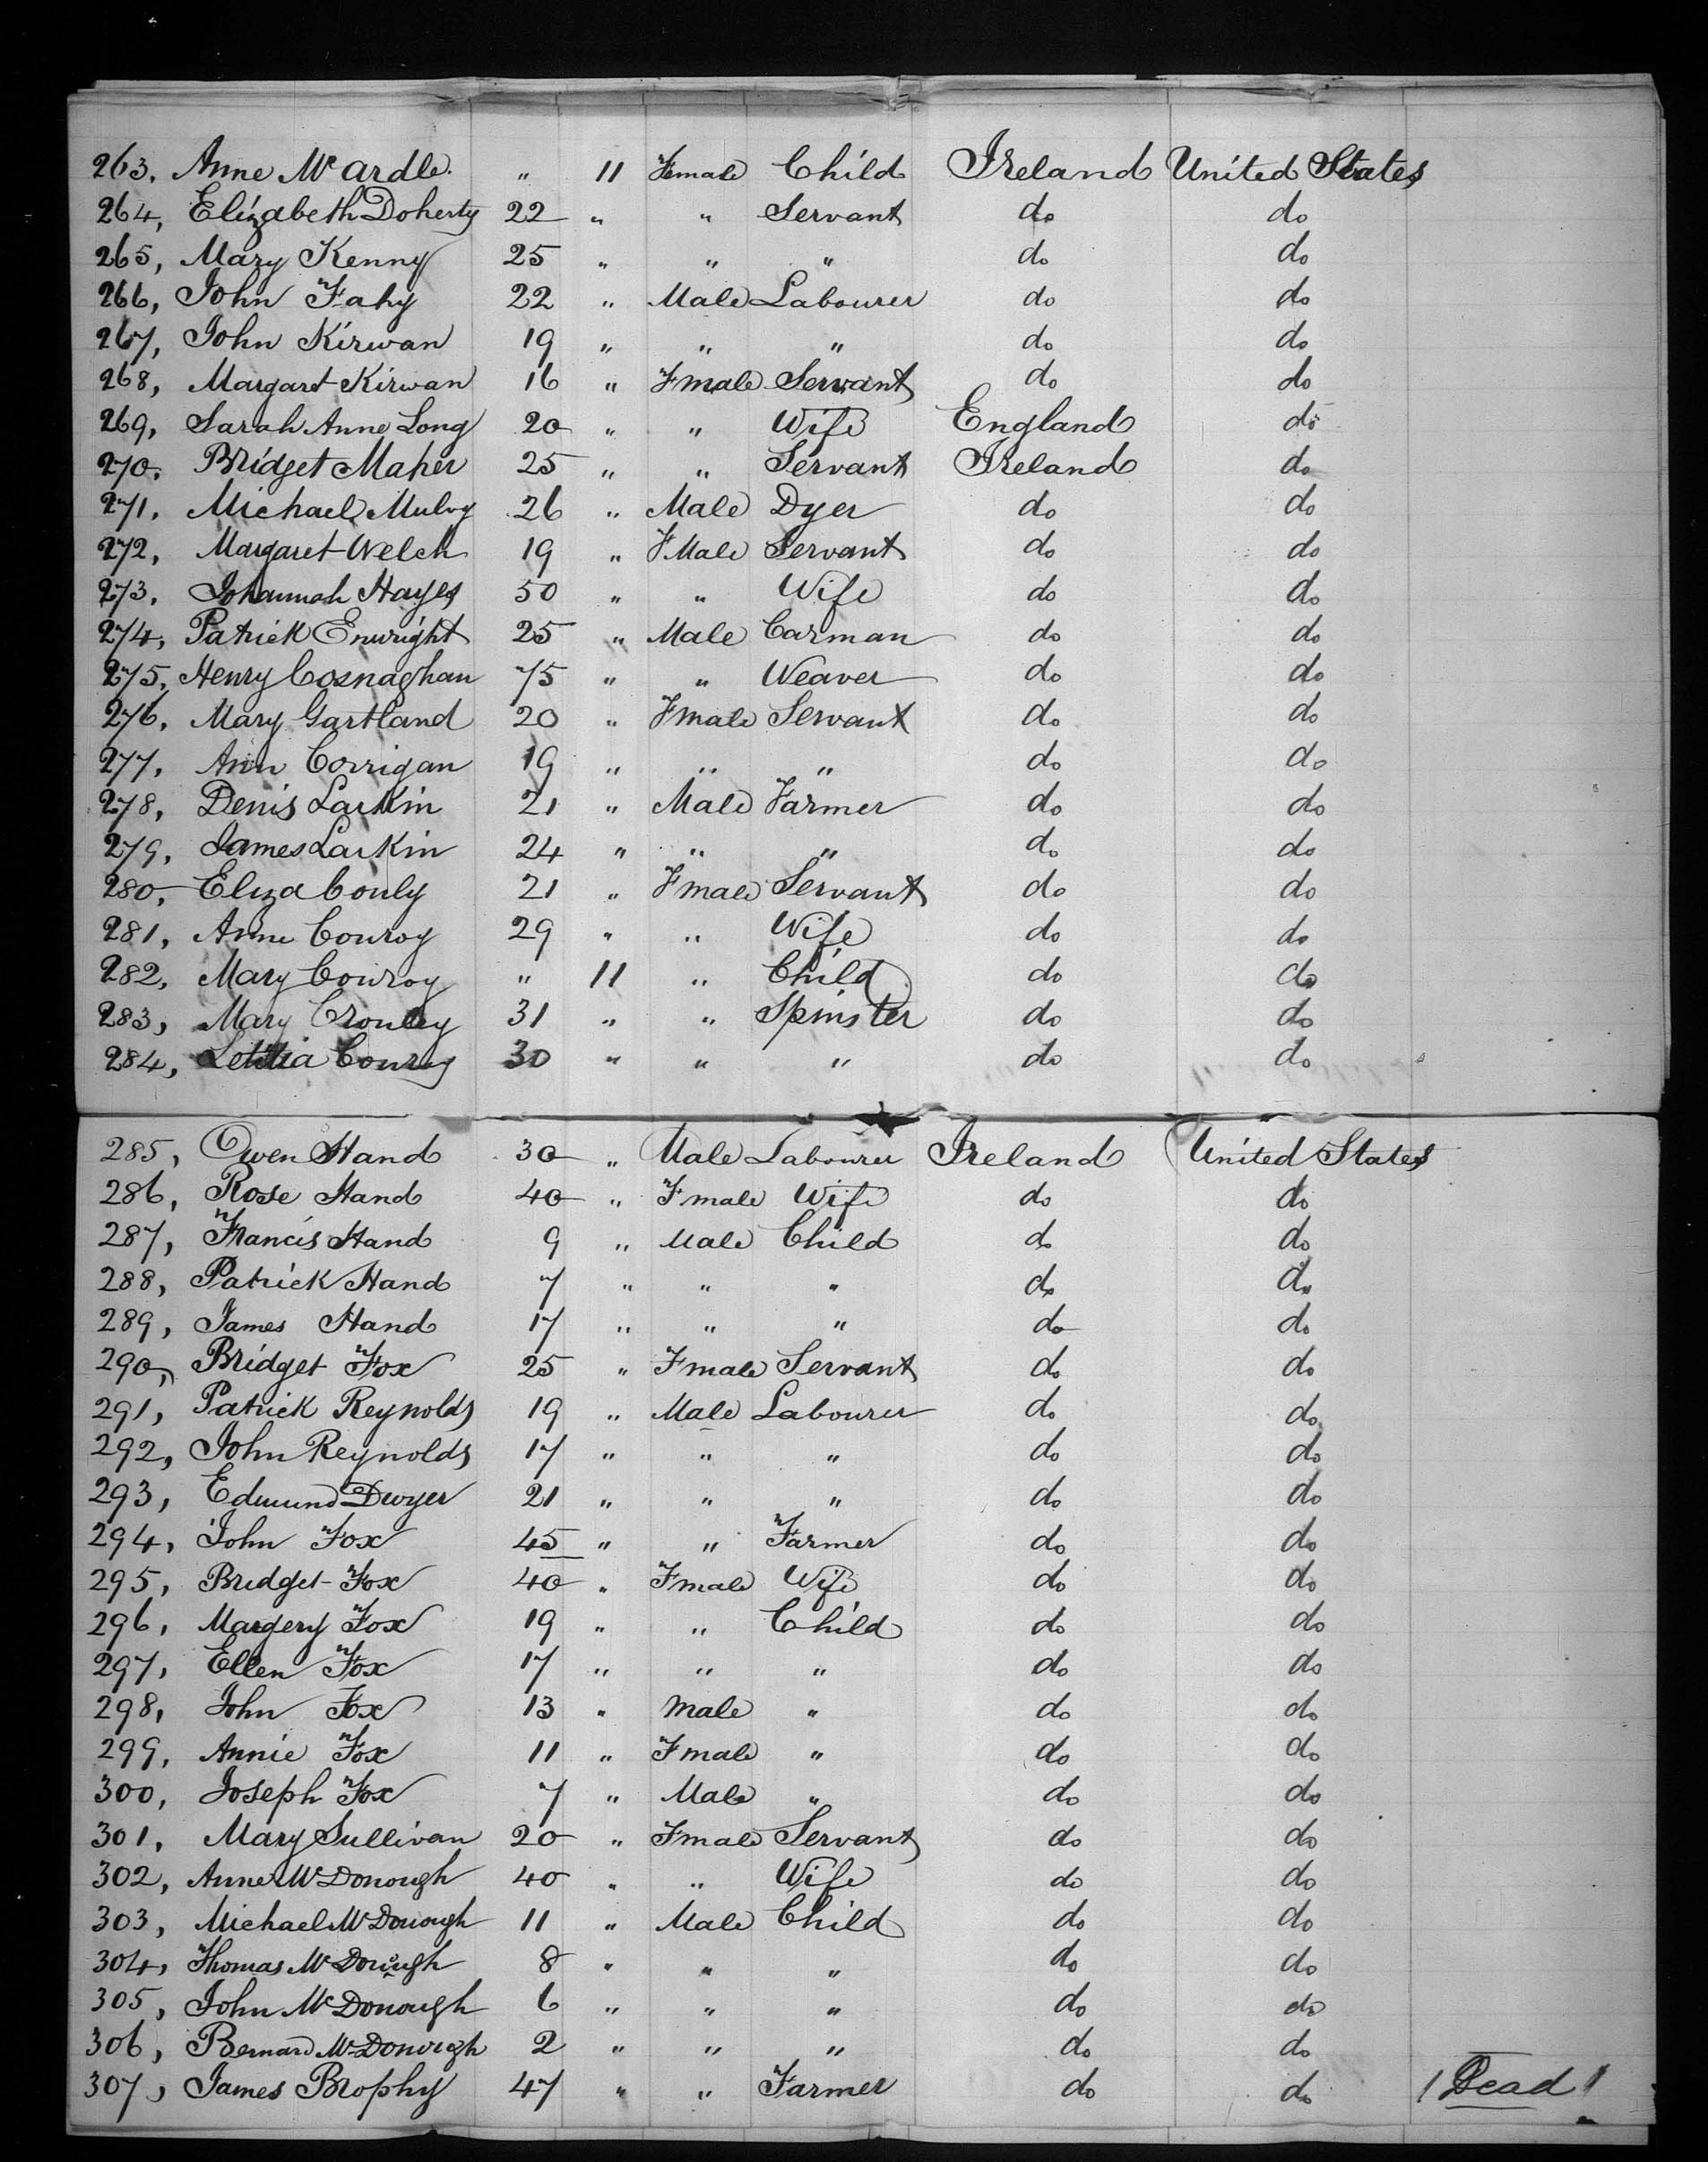 263, Anne McArdle. " 11 Female Child Ireland United States
264, Elizabeth Doherty 22 " " Servant do do
265, Mary Kenny 25 " " " do do
266, John Fahy 22 " Male Labourer do do
267, John Kirwan 19 " " " do do
268, Margaret Kirwan 16 " Fmale Servant do do
269, Sarah Anne Long 20 " " Wife England do
270, Bridget Maher 25 " " Servant Ireland do
271, Michael Mulvy 26 " Male Dyer do do
272, Margaret Welch 19 " FMale Servant do do
273, Johannah Hayes 50 " " Wife do do
274, Patrick Enwright 25 " Male Carman do do
275, Henry Cosnaghan 75 " " Weaver do do
276, Mary Gartland 20 " Fmale Servant do do
277, Ann Corrigan 19 " " " do do
278, Denis Larkin 21 " Male Farmer do do
279, James Larkin 24 " " " do do
280, Eliza Conly 21 " Fmale Servant do do
281, Anne Conroy 29 " " Wife do do
282, Mary Conroy " 11 " Child do do
283, Mary Cronley 31 " " Spinster do do
284, Letitia Conroy 30 " " " do do
285, Owen Hand 30 " Male Labourer Ireland United States
286, Rose Hand 40 " Fmale Wife do do
287, Francis Hand 9 " Male Child do do
288, Patrick Hand 7 " " " do do
289, James Hand 17 " " " do do
290, Bridget Fox 25 " Fmale Servant do do
291, Patrick Reynolds 19 " Male Labourer do do
292, John Reynolds 17 " " " do do
293, Edmund Dwyer 21 " " " do do
294, John Fox 45 " " Farmer do do
295, Bridget Fox 40 " Fmale Wife do do
296, Margery Fox 19 " " Child do do
297, Ellen Fox 17 " " " do do
298, John Fox 13 " Male " do do
299, Annie Fox 11 " Fmale " do do
300, Joseph Fox 7 " Male " do do
301, Mary Sullivan 20 " Fmale Servant do do
302, Anne McDonough 40 " " Wife do do
303, Michael McDonough 11 " Male Child do do
304, Thomas McDonough 8 " " " do do
305, John McDonough 6 " " " do do
306, Bernard McDonough 2 " " " do do
307, James Brophy 47 " " Farmer do do / Dead /